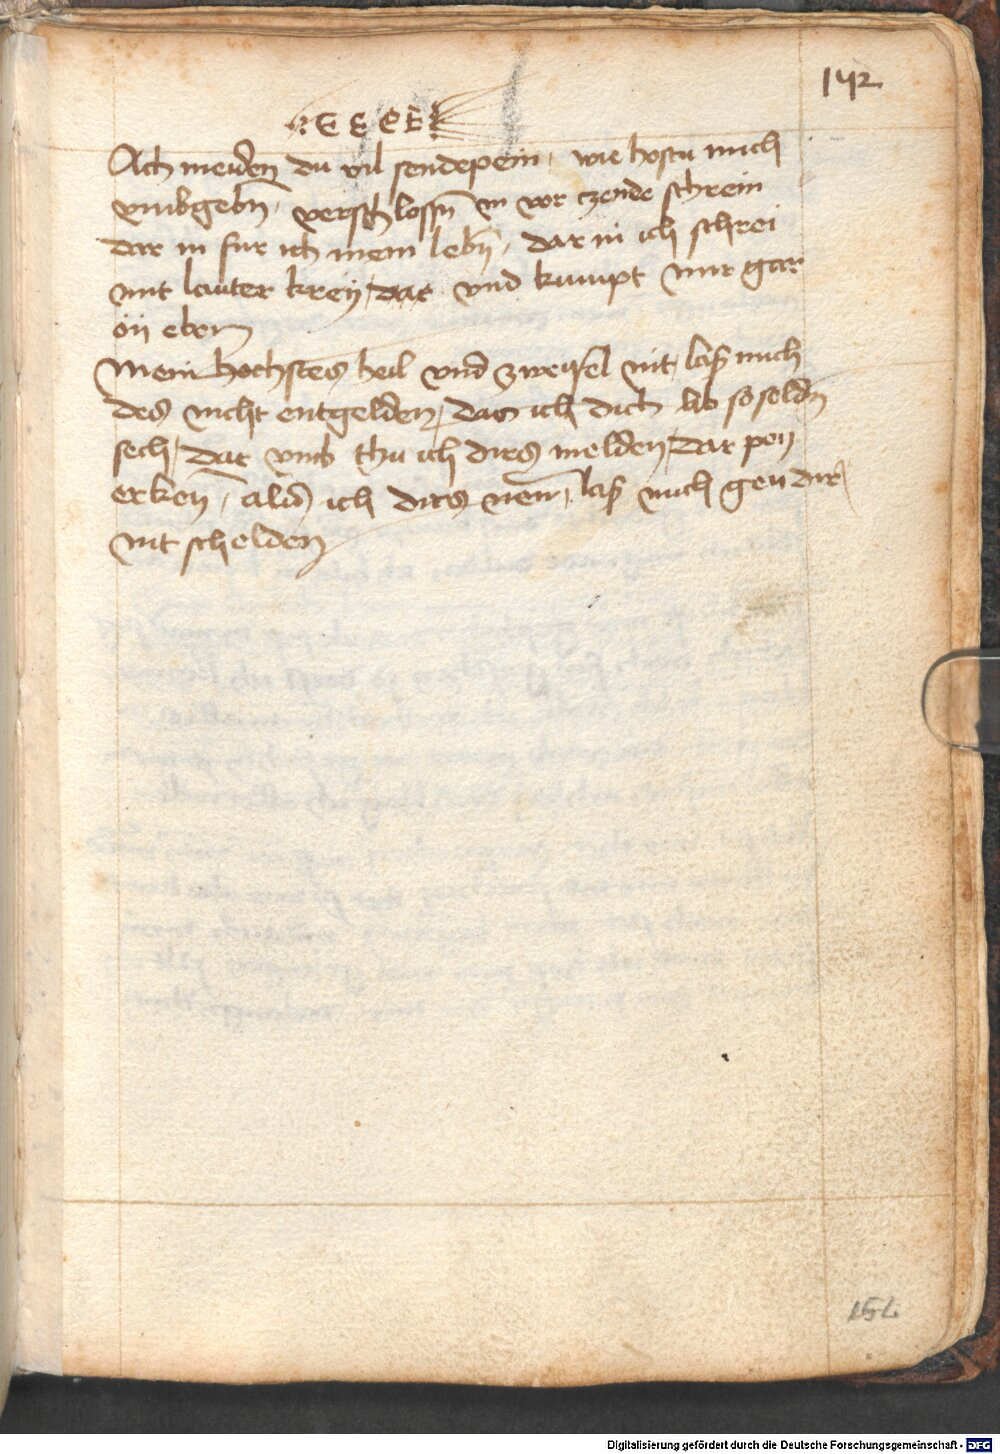 142
Ach meiden du vil sendepein, wie hostu mich
vmbgebn̄, verschlossn̄ in vor czende schrein
dar in fur ich mein lebn̄, dar in ich schrei
mit lauter krey, dar vnd kumpt mir gar
ön eben
Mein hochstes heil vnd zweifel nit, laß mich
des nicht entgelden, das ich dich lib so seldn
sech, dar vmb thu ich dirs melden, dar pey
erken, als ich dirs nem̄, laß mich gen dir
nit schelden
Digitalisierung gefördert durch die Deutsche Forschungsgemeinschaft - DFG